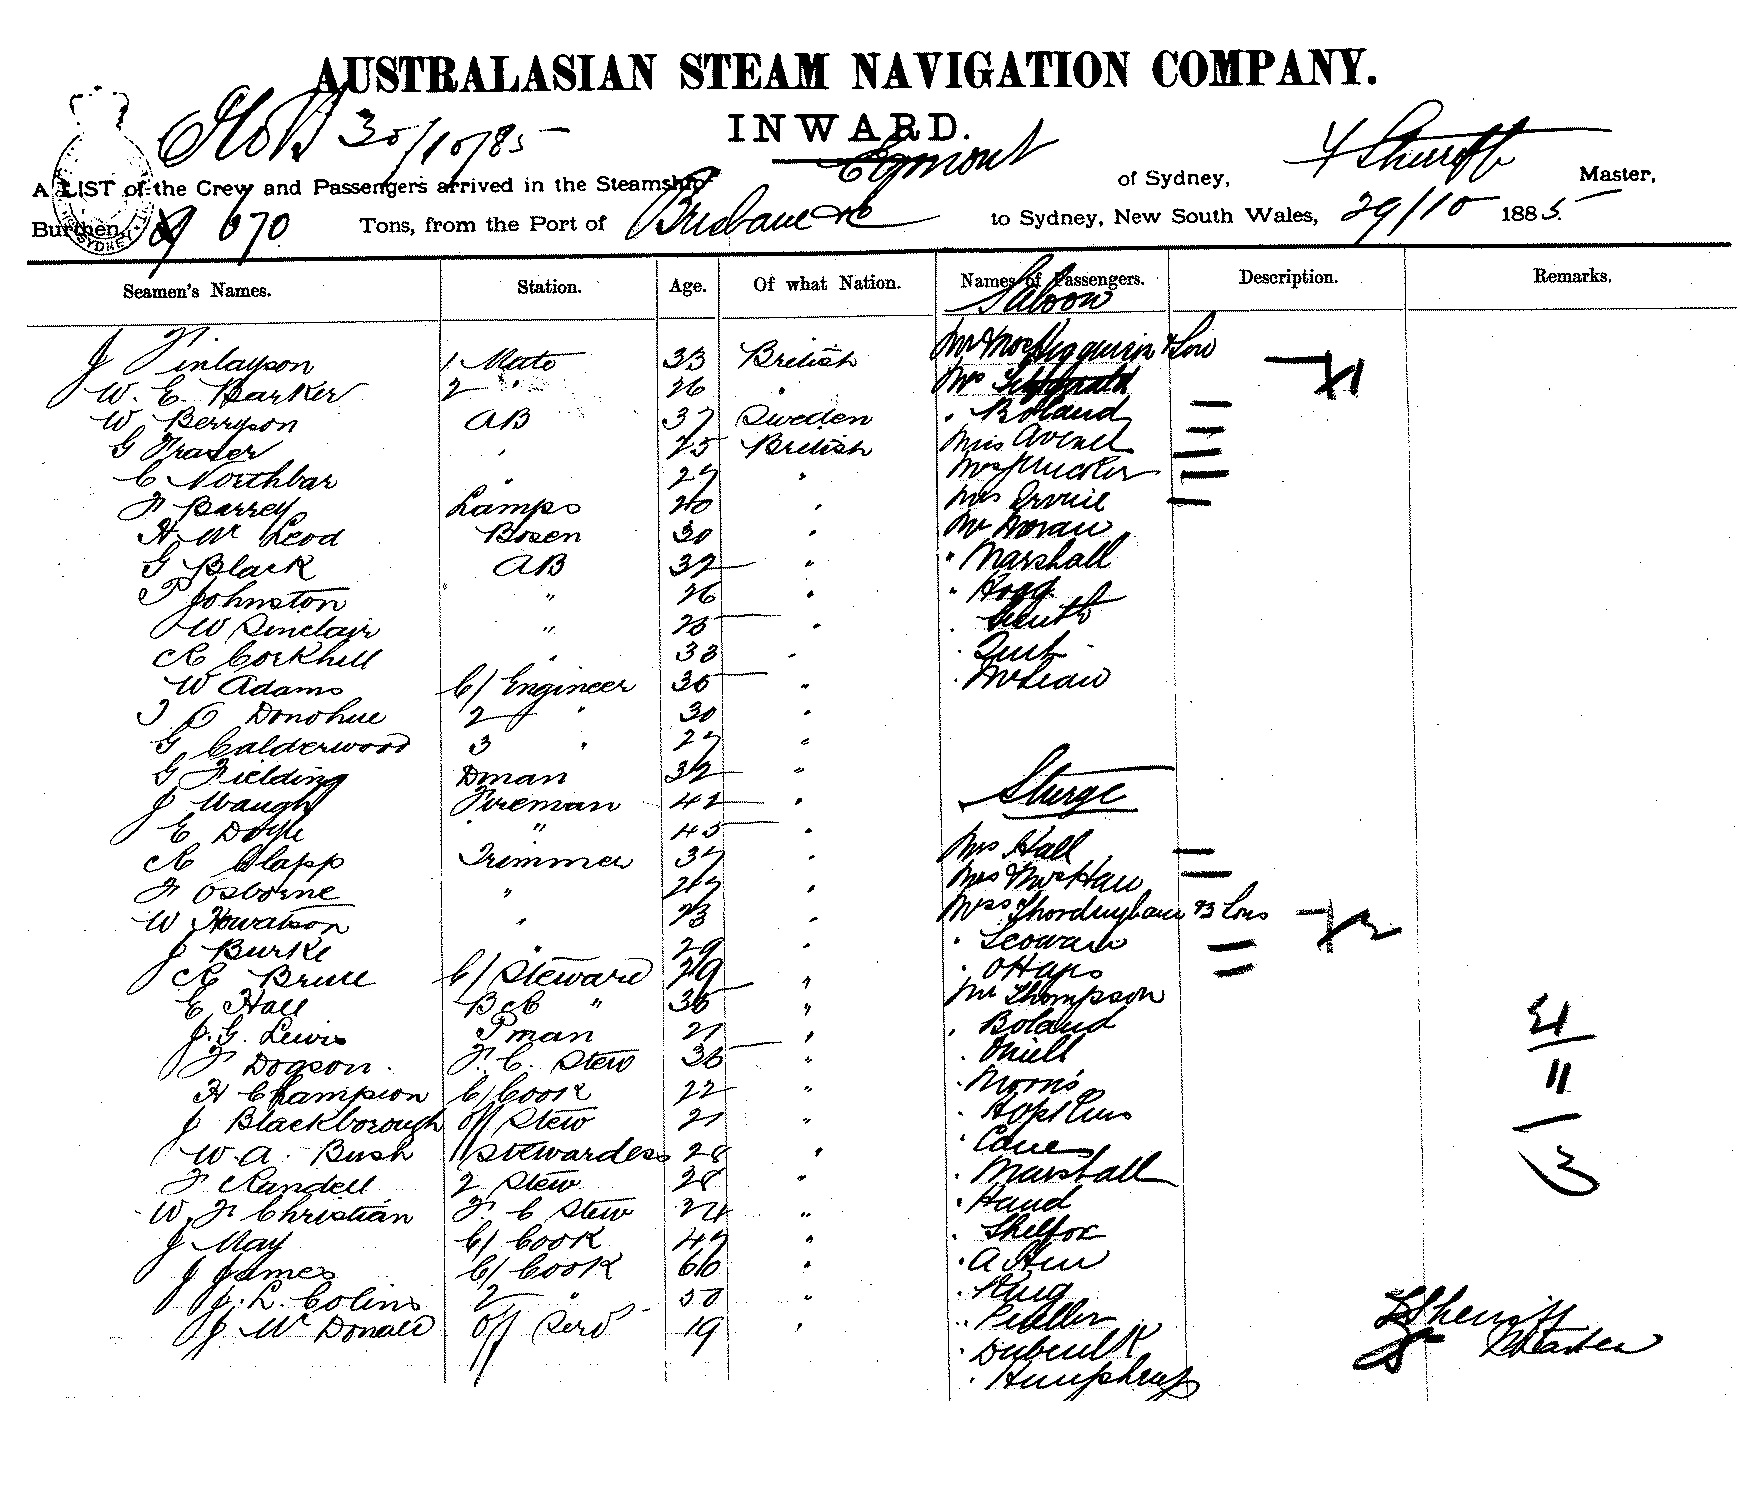 AUSTRALASIAN STEAM NAVIGATION COMPANY.
INWARD.
30/10/85
A LIST of the Crew and Passengers arrived in the Steamship Egmont of Sydney, Sherriff Master,
Burthen, 670 Tons, from the Port of Brisbane to Sydney, New South Wales, 29/10 1885
Seamen's Names. Station. Age. Of what Nation. Names of Passengers. Description. Remarks.
Saloon
J Finlayson 1 Mate 33 British & Son
W. E. Barker 2 " 26 " Mrs Fitzgerald
W Berryson AB 37 Sweden " Boland
G Fraser " 25 British Miss Avenel
C Northbar " 27 " Mrs
F Barrey Lamps 20 " Mrs Irvine
H Mc Leod Bosen 30 " Mr Doran
G Black AB 32 " " Marshall
P Johnston " 26 " " Hogg
W Sinclair " 25 "
R Corkhill " 33 "
W Adams C/ Engineer 35 " " McLean
T O Donohue 2 " 30 "
G Calderwood 3 " 27 "
G Fielding Dman 32 "
J Waugh Fireman 42 " Sturge
E Doyle " 45 "
R Clapp Trimmer 37 " Mrs Hall
F Osborne " 27 " Mrs
W Howatson " 23 " Mrs & 3 Sons
J Burke " 29 "
R Bruce C/ Steward 29 "
E Hall B C " 35 " Mr Thompson
J. G. Lewis Pman 21 " " Boland
F Dogson. F. C. Stew 36 " " Oniell
H Champion C/ Cook 22 " " Morris
J Blackborough Off Stew 21 " " Hopkins
W. A. Bush Stewardess 28 "
F Randell 2 Stew 28 " " Marshall
W F Christian F C Stew 24 " " Hand
J May C/ Cook 47 "
J James C/ Cook 66 "
J. L. Colins 2 " 50 " " King
J Mc Donald Off Serv 19 "
" Humphreys
21
11
1
3
Sherriff
Master